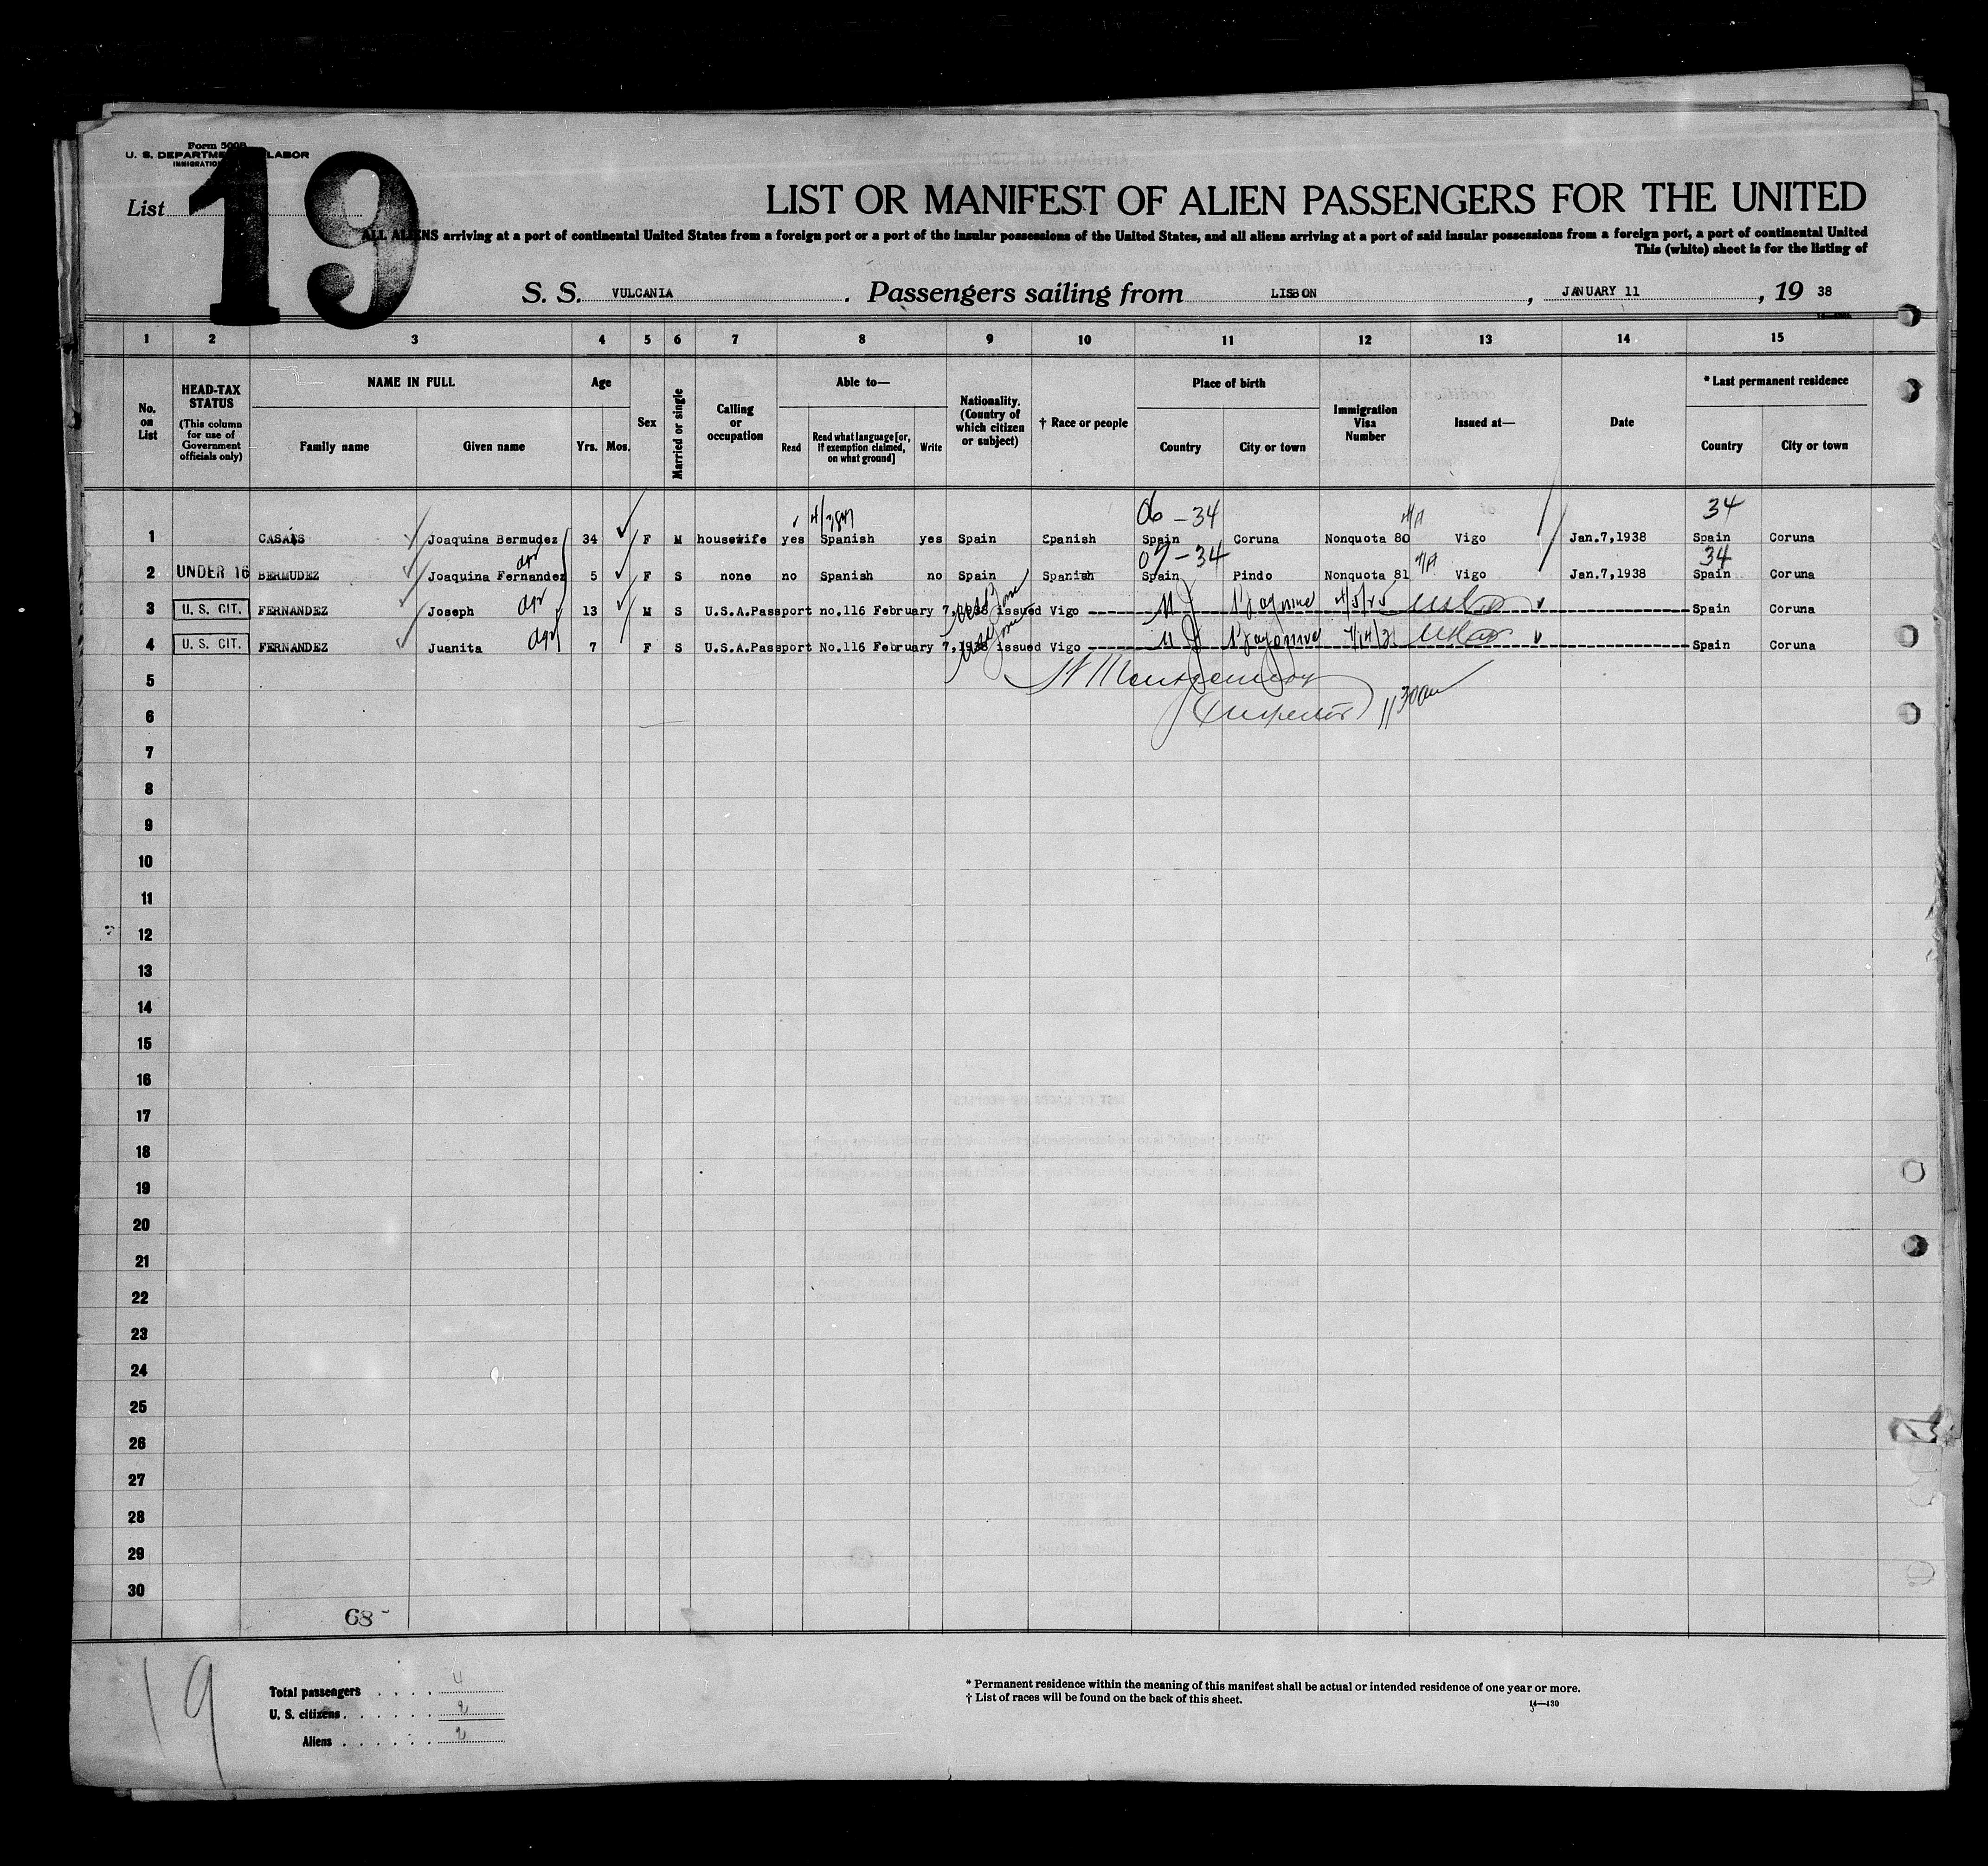 Form 500B
U. S. DEPARTMENT LABOR
IMMIGRATION
List
19
LIST OR MANIFEST OF ALIEN PASSENGERS FOR THE UNITED
ALL ALIENS arriving at a port of continental United States from a foreign port or a port of the insular possessions of the United States, and all aliens arriving at a port of said insular possessions from a foreign port, a port of continental United
This (white) sheet is for the listing of
S. S. VULCANIA . Passengers sailing from LISBON , JANUARY 11 , 19 38
1 2 3 4 5 6 7 8 9 10 11 12 13 14 15
No. on List
HEAD-TAX STATUS (This column for use of Government officials only)
NAME IN FULL
Family name Given name
Age
Yrs. Mos.
Sex
Married or single
Calling or occupation
Able to—
Read Read what language [or, if exemption claimed, on what ground] Write
Nationality. (Country of which citizen or subject)
† Race or people
Place of birth
Country City or town
Immigration Visa Number
Issued at—
Date
* Last permanent residence
Country City or town
06 - 34 34
1 CASAIS Joaquina Bermudez 34 F M housewife yes Spanish yes Spain Spanish Spain Coruna Nonquota 80 Vigo Jan.7,1938 Spain Coruna
07 - 34 34
2 UNDER 16 BERMUDEZ Joaquina Fernandez 5 F S none no Spanish no Spain Spanish Spain Pindo Nonquota 81 Vigo Jan.7,1938 Spain Coruna
3 U. S. CIT. FERNANDEZ Joseph 13 M S U.S.A.Passport no.116 February 7,1938 issued Vigo NJ 4/5/25 Spain Coruna
4 U. S. CIT. FERNANDEZ Juanita 7 F S U.S.A.Passport No.116 February 7,1938 issued Vigo NJ Spain Coruna
5 Montgomery
6 (Inspector) 11 30am
7
8
9
10
11
12
13
14
15
16
17
18
19
20
21
22
23
24
25
26
27
28
29
30
68
19
Total passengers . . . . 4
U. S. citizens . . . . . . 2
Aliens . . . . . . 2
* Permanent residence within the meaning of this manifest shall be actual or intended residence of one year or more.
† List of races will be found on the back of this sheet.
14—430